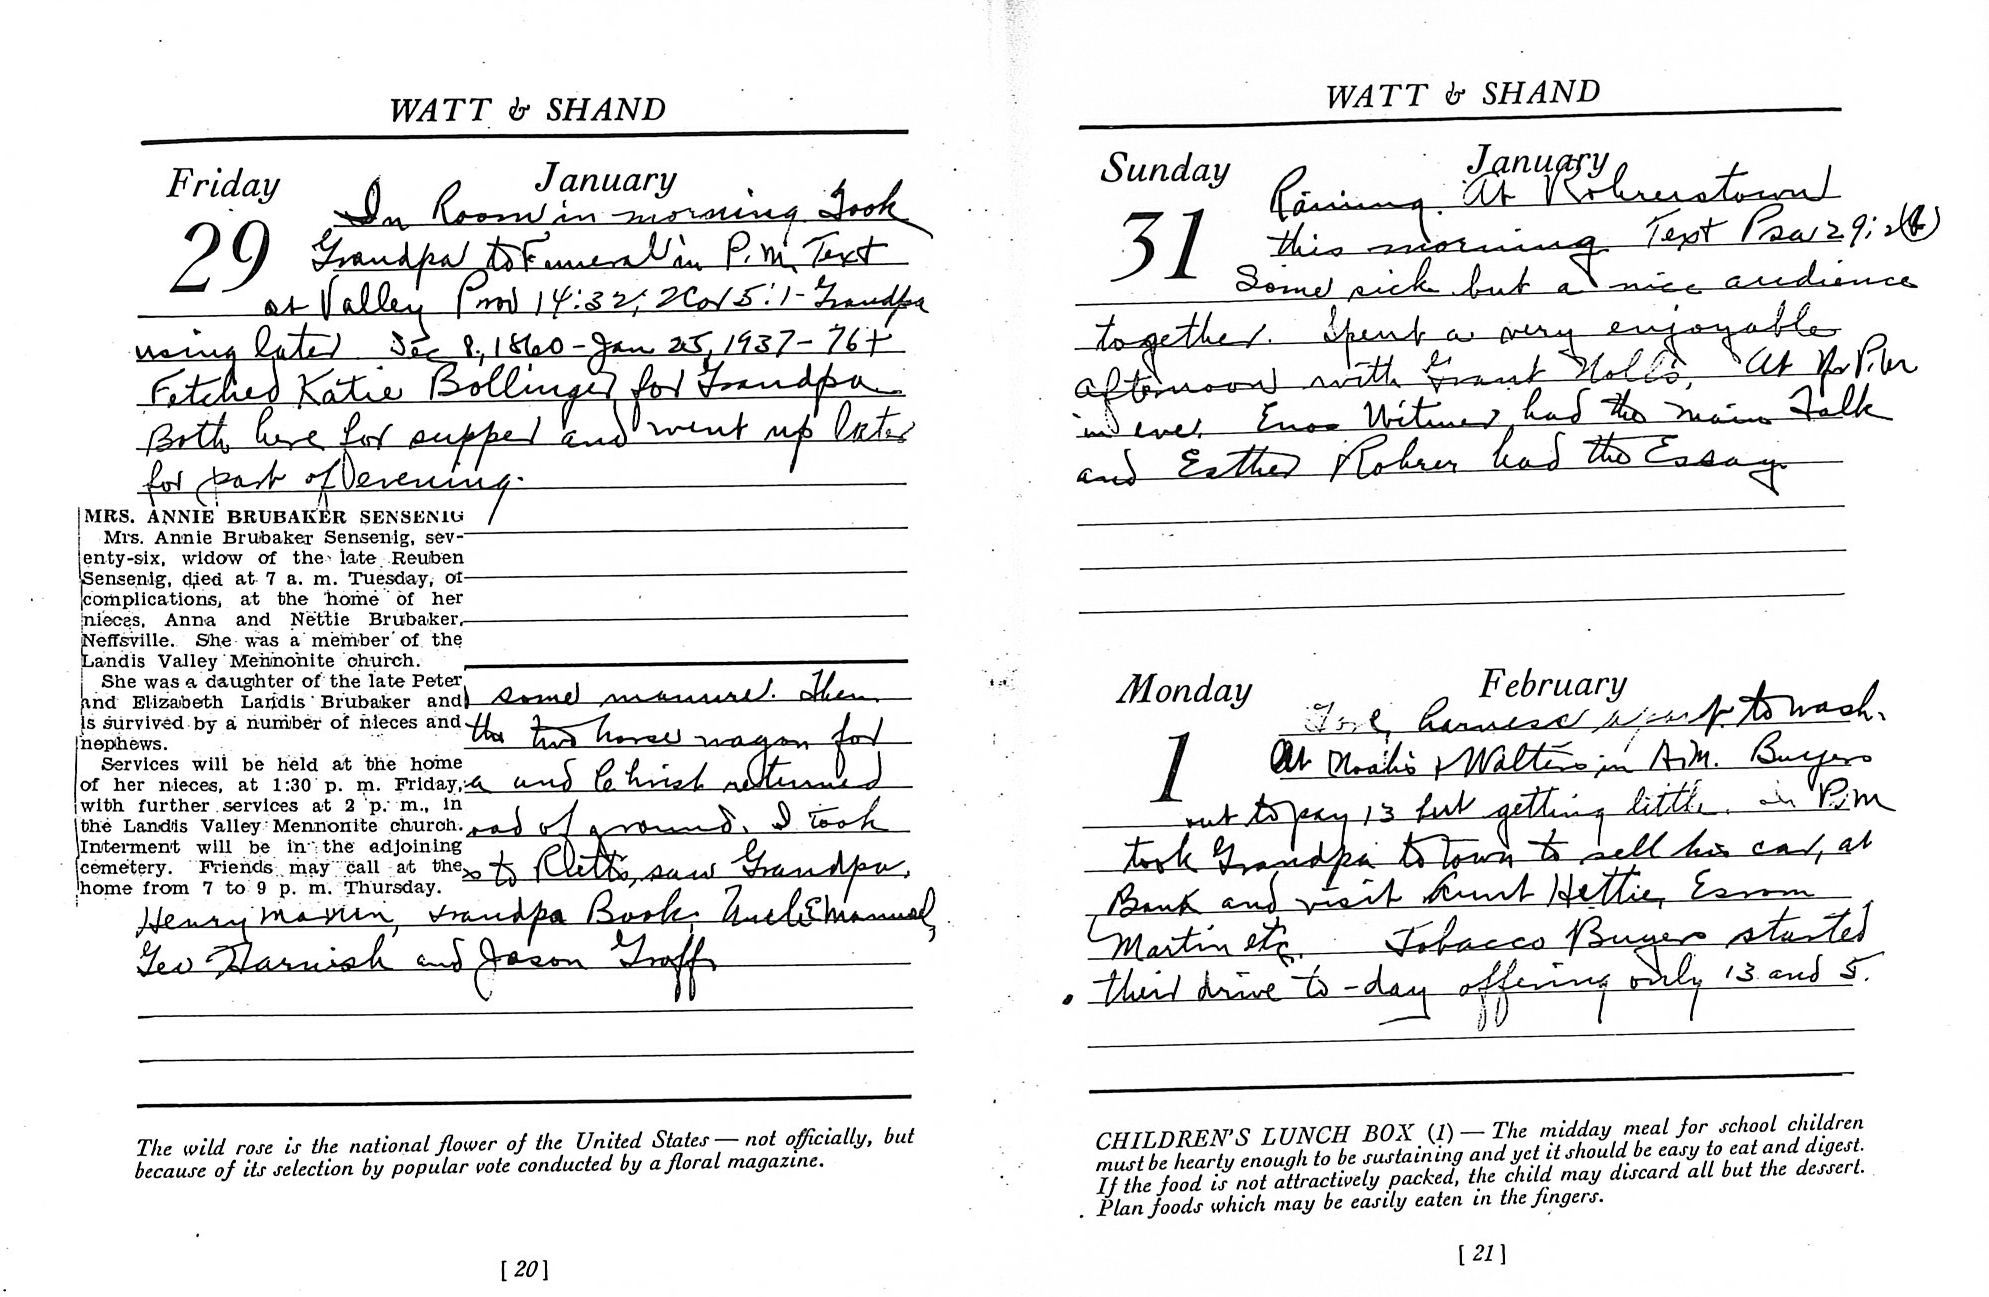 WATT & SHAND
Friday January
29
In Room in morning. Took
Grandpa to Funeral in P.M. Text
at Valley Prov 14:32; 2Cor 5:1 - Grandpa
using later. Dec 8, 1860 - Jan 25, 1937 - 76+
Fetched Katie Bollinger for Grandpa
Both here for supper and went up later
for part of evening.
MRS. ANNIE BRUBAKER SENSENIG
Mrs. Annie Brubaker Sensenig, sev-
enty-six, widow of the late Reuben
Sensenig, died at 7 a. m. Tuesday, of
complications, at the home of her
nieces, Anna and Nettie Brubaker,
Neffsville. She was a member of the
Landis Valley Mennonite church.
She was a daughter of the late Peter
and Elizabeth Landis Brubaker and
is survived by a number of nieces and
nephews.
Services will be held at the home
of her nieces, at 1:30 p. m. Friday,
with further services at 2 p. m., in
the Landis Valley Mennonite church.
Interment will be in the adjoining
cemetery. Friends may call at the
home from 7 to 9 p. m. Thursday.
some manure. Then
the two horse wagon for
and Christ returned
of ground. I took
to saw Grandpa,
Henry Martin, Grandpa Book, Uncle Emanuel,
Geo Harnish and Jason Groff
The wild rose is the national flower of the United States — not officially, but
because of its selection by popular vote conducted by a floral magazine.
[ 20 ]
WATT & SHAND
Sunday January
31
Raining. At Rohrerstown
this morning. Text Psa 29:2
Some sick but a nice audience
together. Spent a very enjoyable
afternoon with Grant Noll's. At
in eve. Enos Witmer had the main Talk
and Esther Rohrer had the Essay
Monday February
1
harness to wash.
At Noah's & Walter's in A.M. Buyers
out to pay 13 but getting little. in P.M
took Grandpa to town to sell his car, at
Bank and visit Aunt Hettie,
Martin etc. Tobacco Buyers started
their drive to-day offering only 13 and 5.
CHILDREN'S LUNCH BOX (1) — The midday meal for school children
must be hearty enough to be sustaining and yet it should be easy to eat and digest.
If the food is not attractively packed, the child may discard all but the dessert.
Plan foods which may be easily eaten in the fingers.
[ 21 ]